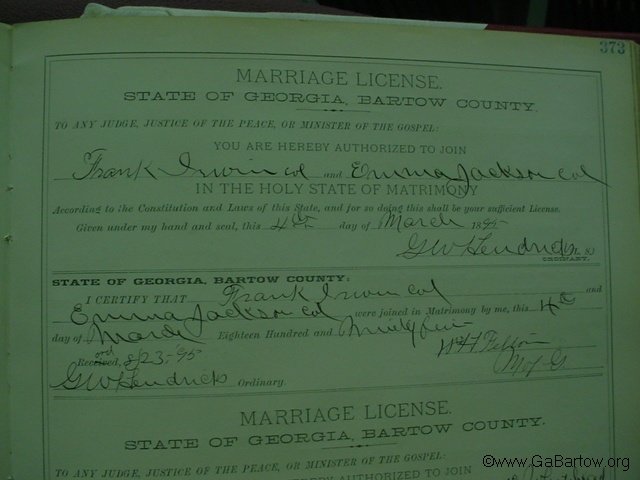 373
MARRIAGE LICENSE.
STATE OF GEORGIA, BARTOW COUNTY.
TO ANY JUDGE, JUSTICE OF THE PEACE, OR MINISTER OF THE GOSPEL:
YOU ARE HEREBY AUTHORIZED TO JOIN
Frank Irwin col and Emma Jackson col
IN THE HOLY STATE OF MATRIMONY
According to the Constitution and Laws of this State, and for so doing this shall be your sufficient License.
Given under my hand and seal, this 4th day of March 1895
GW Hendricks L. S.
ORDINARY.
STATE OF GEORGIA, BARTOW COUNTY:
I CERTIFY THAT Frank Irwin col and
Emma Jackson col were joined in Matrimony by me, this 4th
day of March Eighteen Hundred and Ninety five
8/23-95
M of G.
GW Hendricks Ordinary.
MARRIAGE LICENSE.
STATE OF GEORGIA, BARTOW COUNTY.
TO ANY JUDGE, JUSTICE OF THE PEACE, OR MINISTER OF THE GOSPEL:
YOU ARE HEREBY AUTHORIZED TO JOIN
©www.GaBartow.org